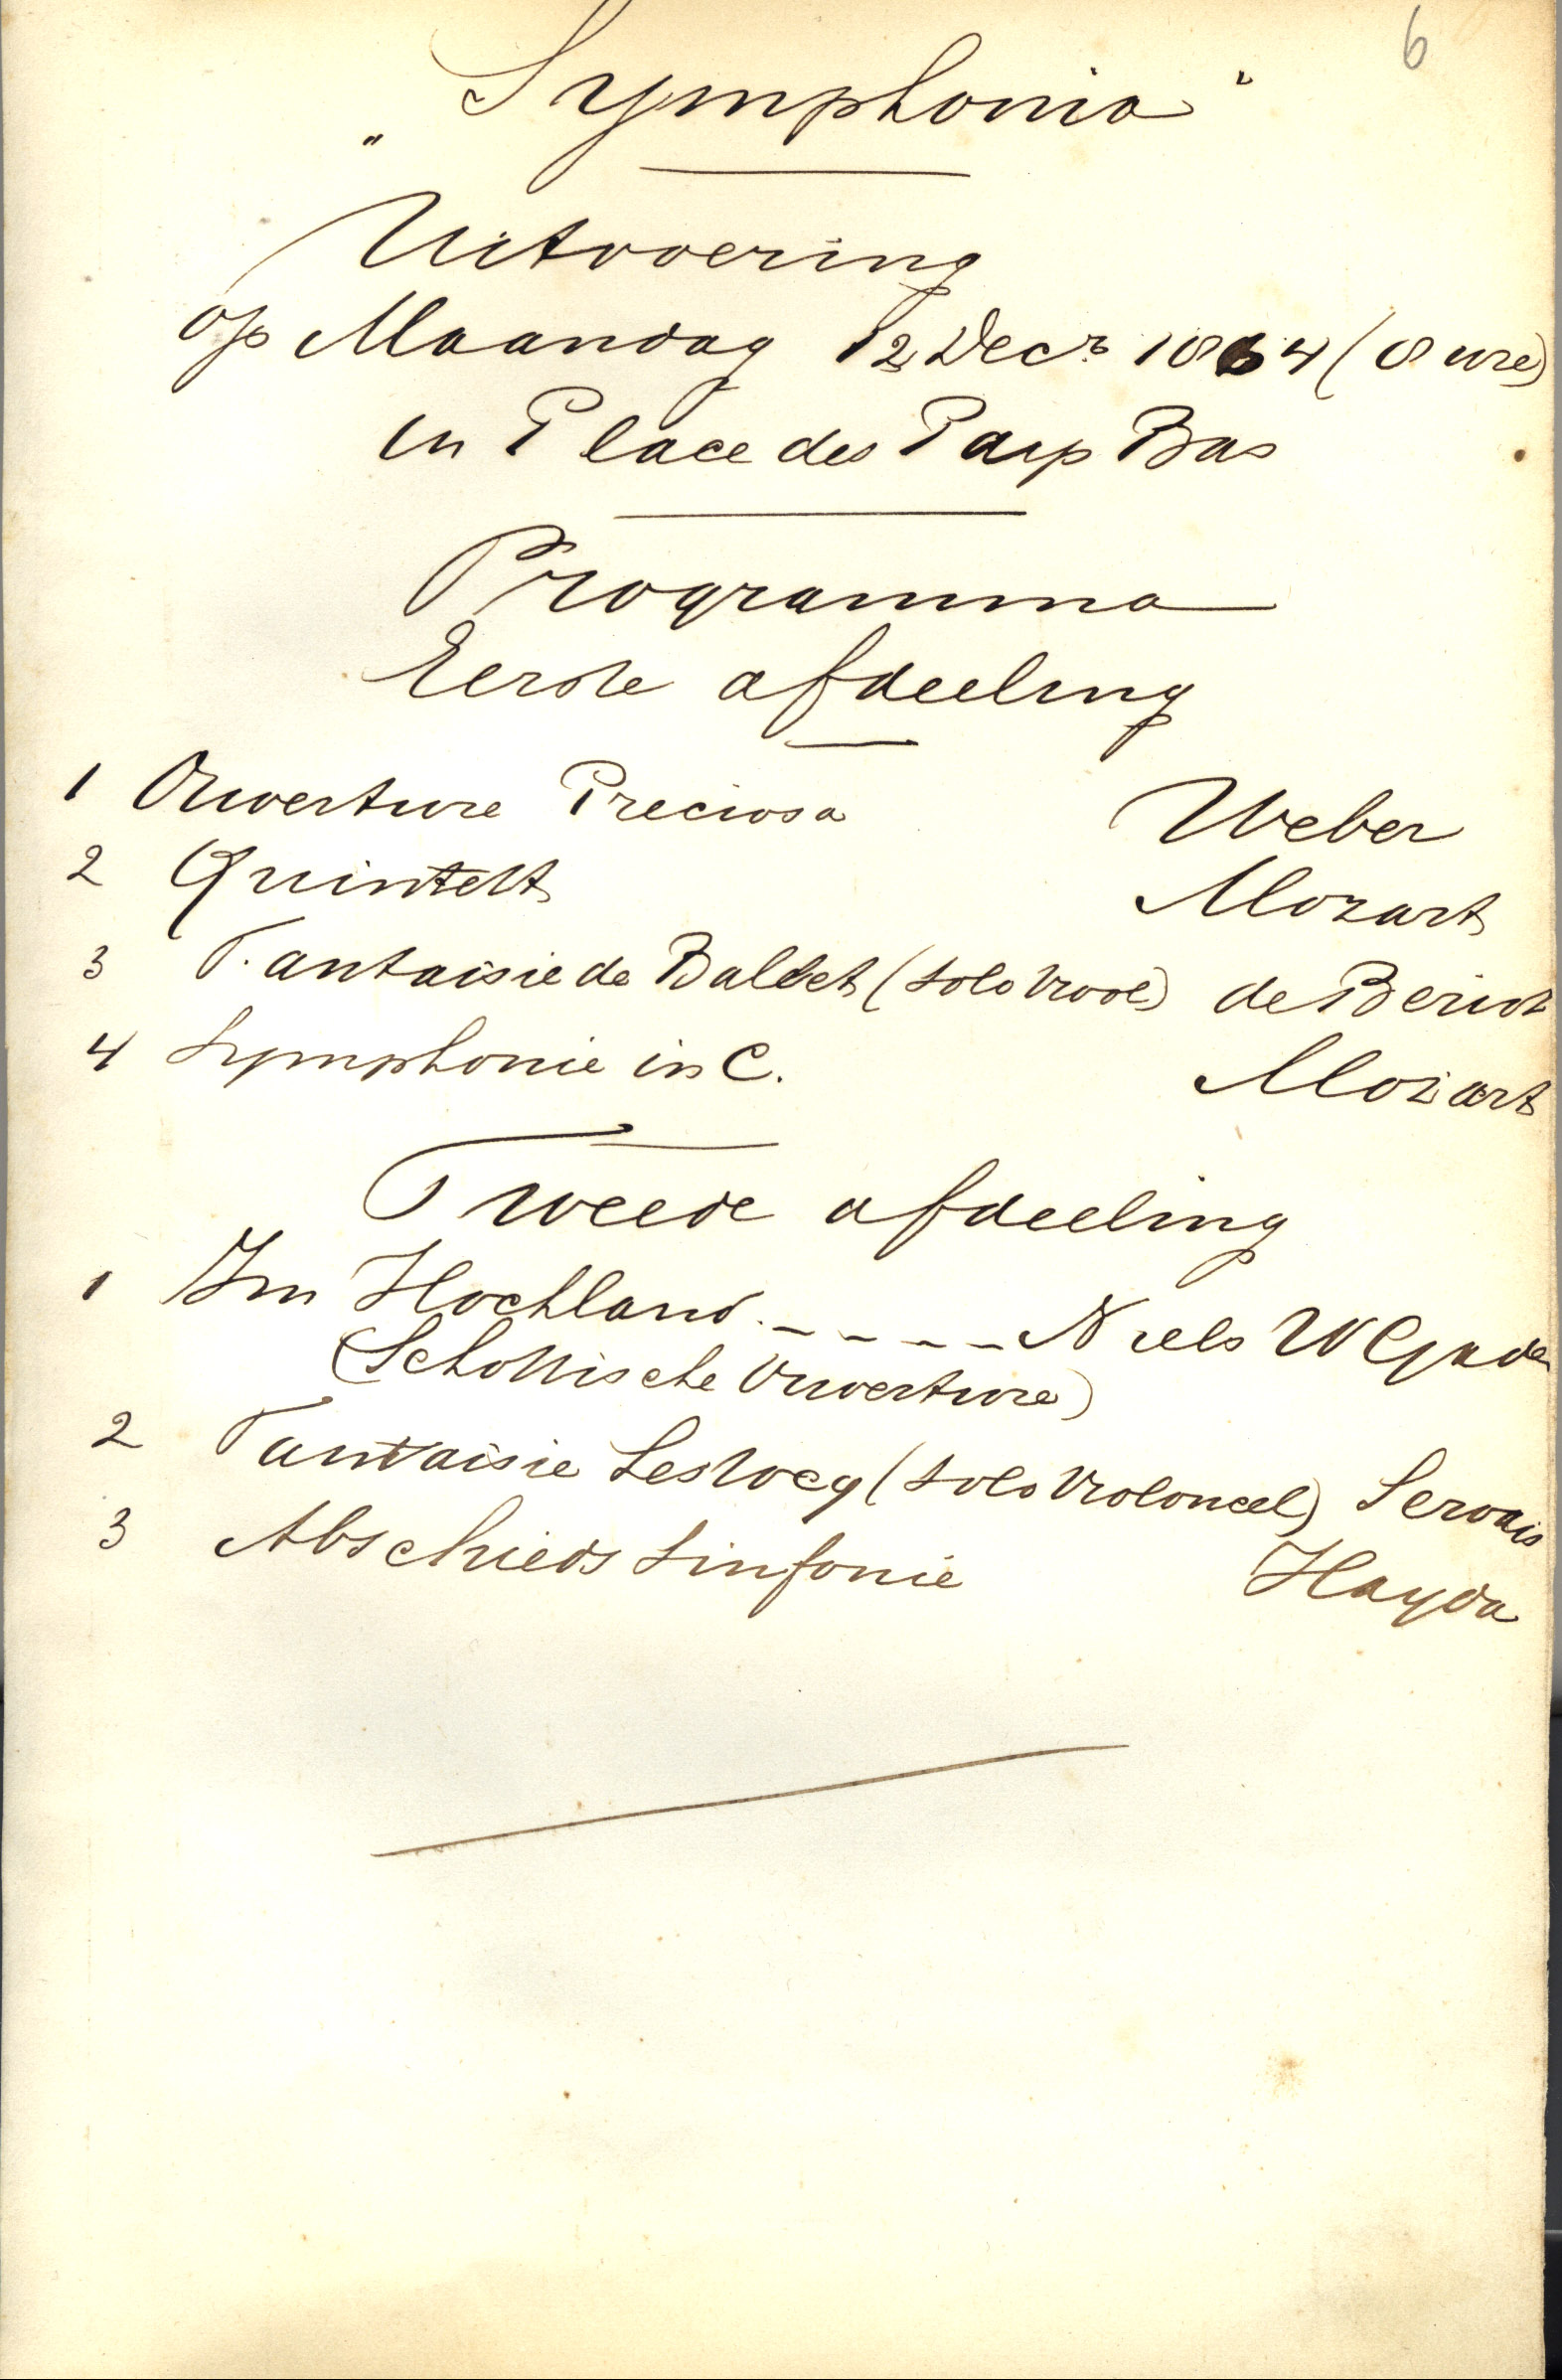 6
„Symphonia"
Uitvoering
op Maandag 12 Decr 1864 (8 ure)
in Place des Pays Bas
Programma
Eerste afdeeling
1 Ouverture Preciosa Weber
2 Quintett Mozart
3 Fantaisie de Ballet (solo viool) de Beriot
4 Symphonie in C. Mozart
Tweede afdeeling
1 Im Hochland. – – – – Niels W Gade
(Schottische Ouverture)
2 Fantaisie Lestocq (solo violoncel) Servais
3 Abschieds Sinfonie Haydn